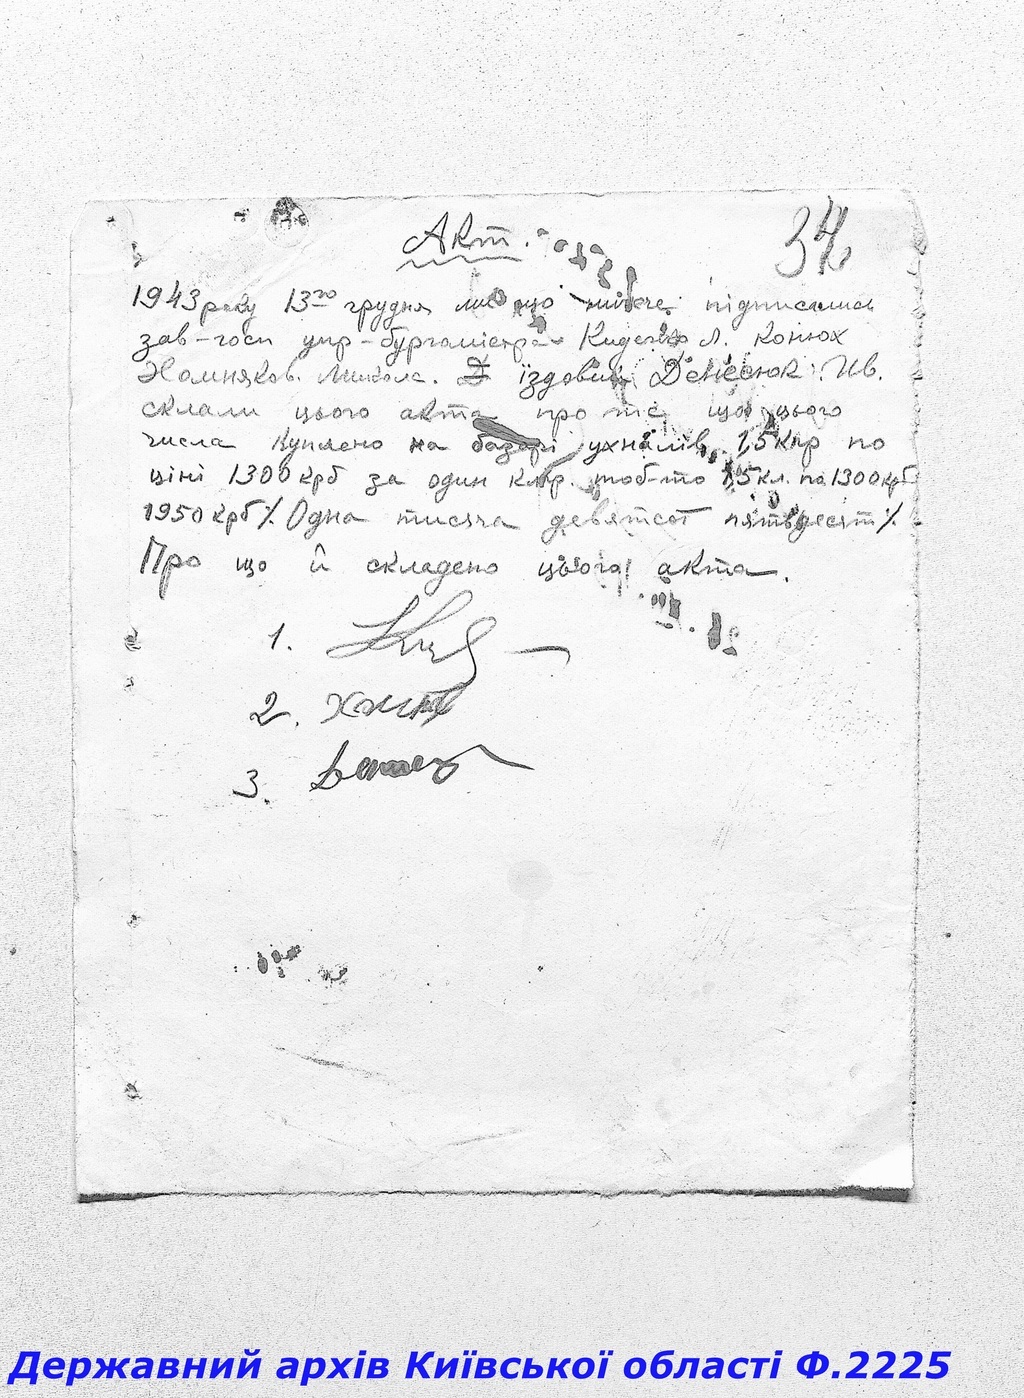 Акт.
34
1943 року 13го грудня ми що нижче підписалися
зав-госп упр-бургомістра Киденко Л. конюх
Хомняков. Микола. їздовий Денисюк. Ив.
склали цього акта про те що цього
числа куплено на базарі ухналів 1,5 клр по
ціні 1300 крб за один клр. тоб-то 1,5 кл. по 1300 крб
1950 крб % Одна тисяча девятсот пятьдесят %
Про що й складено цього акта.
1.
2.
3.
Державний архів Київської області Ф.2225